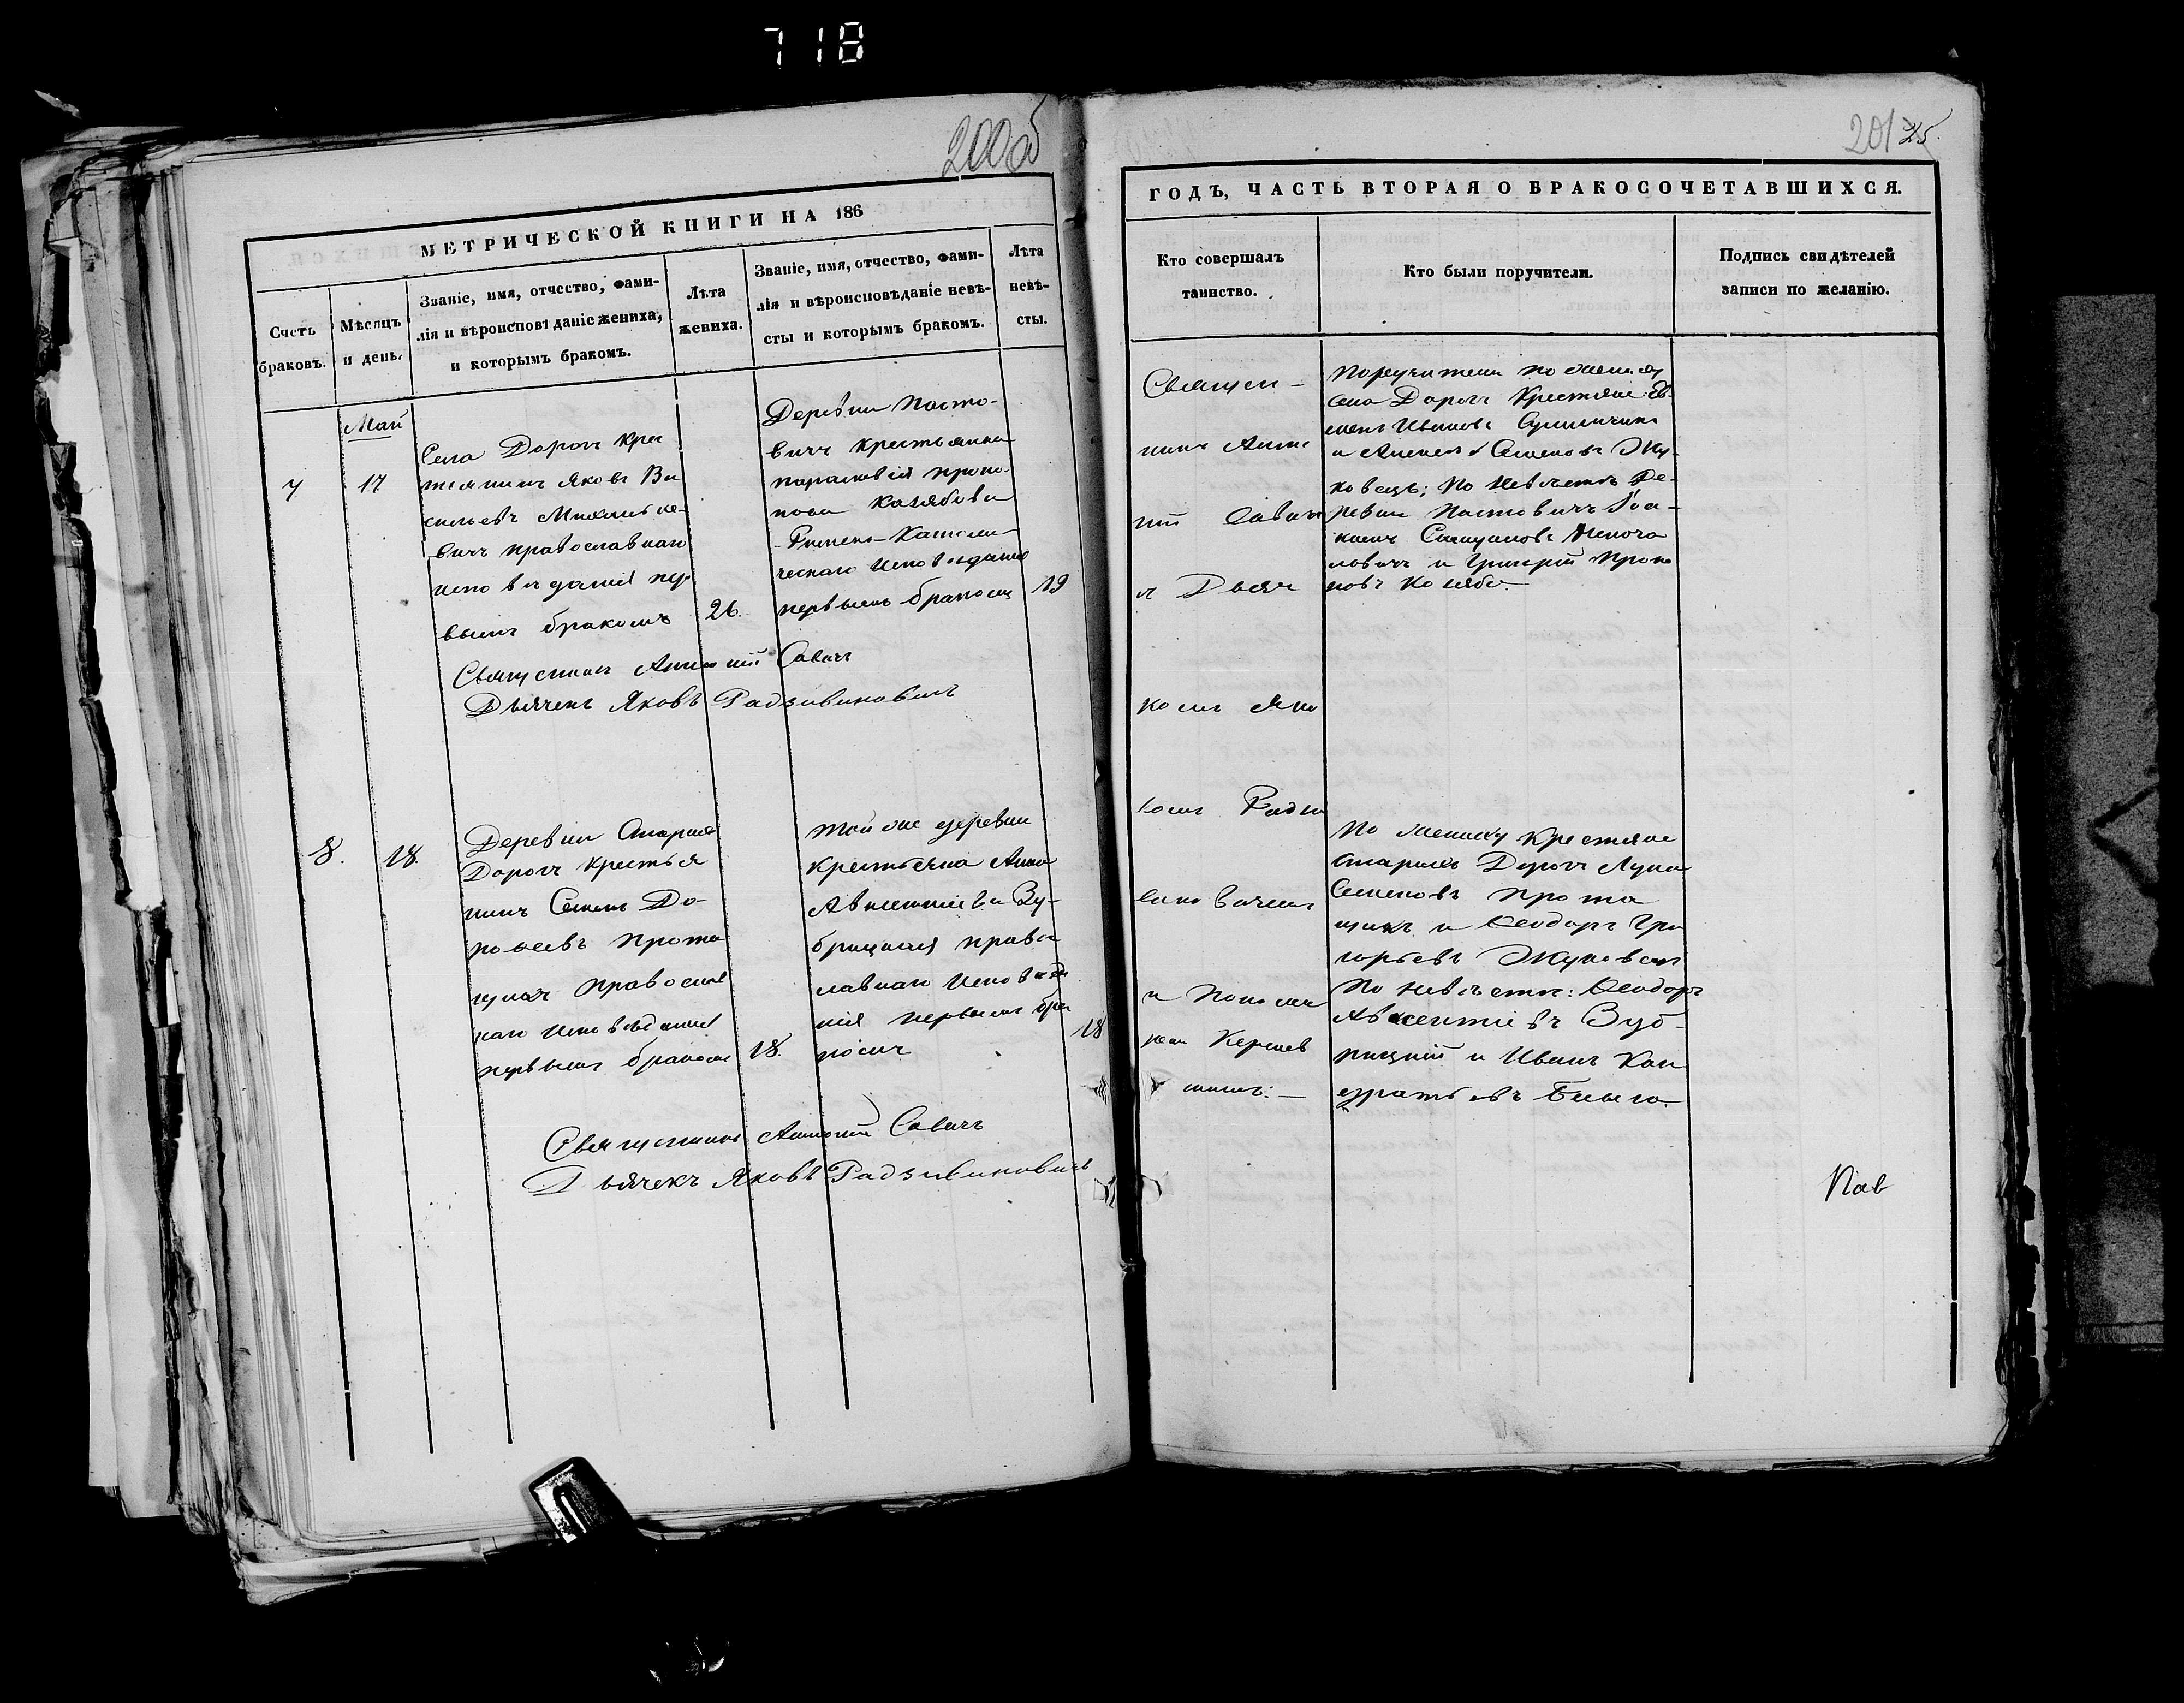 718
200об
МЕТРИЧЕСКОЙ КНИГИ НА 186
Счетъ браковъ.
Мѣсяцъ и день.
Званіе, имя, отчество, фами-
лія и вѣроисповѣданіе жениха,
и которымъ бракомъ.
Лѣта
жениха.
Званіе, имя, отчество, фами-
лія и вѣроисповѣданіе невѣ-
сты и которымъ бракомъ.
Лѣта
невѣ-
сты.
Май
7
17
Села Дорогъ Крес
тянинъ Яковъ Ва
сильевъ
вичъ православнаго
исповеданія пер
вымъ бракомъ
26.
Деревни Посто-
вичъ крестьянка
Парасковія Проко-
пова Козябова
Римско-Католи-
ческаго исповеданія
первымъ бракомъ
19
Священникъ Антоній Савичъ
Дьячекъ Яковъ Радзивиновичъ
8.
18.
Деревни Старыхъ
Дорогъ крестья
нинъ Семенъ До-
рофеевъ Прота
щикъ православ
наго исповеданія
первымъ бракомъ
18.
Той же деревни
крестьянка Анна
Авксентіева Зу-
брицкая право
славнаго исповеда
нія первымъ бра
комъ
18
Священникъ Антоній Савичъ
Дьячекъ Яковъ Радзивиновичъ
201 25.
ГОДЪ, ЧАСТЬ ВТОРАЯ О БРАКОСОЧЕТАВШИХСЯ.
Кто совершалъ
таинство.
Кто были поручители.
Подпись свидѣтелей
записи по желанію.
Священ-
никъ Анто
ній Савичъ
съ Дьяч
комъ Яко
вомъ Радзи
виновичемъ
и Понома
ремъ
Поручители по жениху
села Дорогъ Крестьяне
Ивановъ
и Алексей Семеновъ Жу-
ковецъ; По невестѣ де-
ревни Постовичъ Іоа-
кимъ Степановъ
и Григорій Проко
повъ Козяба.
По жениху Крестьяне
Старыхъ Дорогъ Лука
Семеновъ Прота
щикъ и Ѳеодоръ Гри
горьевъ Жуковецъ
По невѣстѣ: Ѳеодоръ
Авксентіевъ Зуб-
рицкій и Иванъ Кон
дратьевъ
Пав